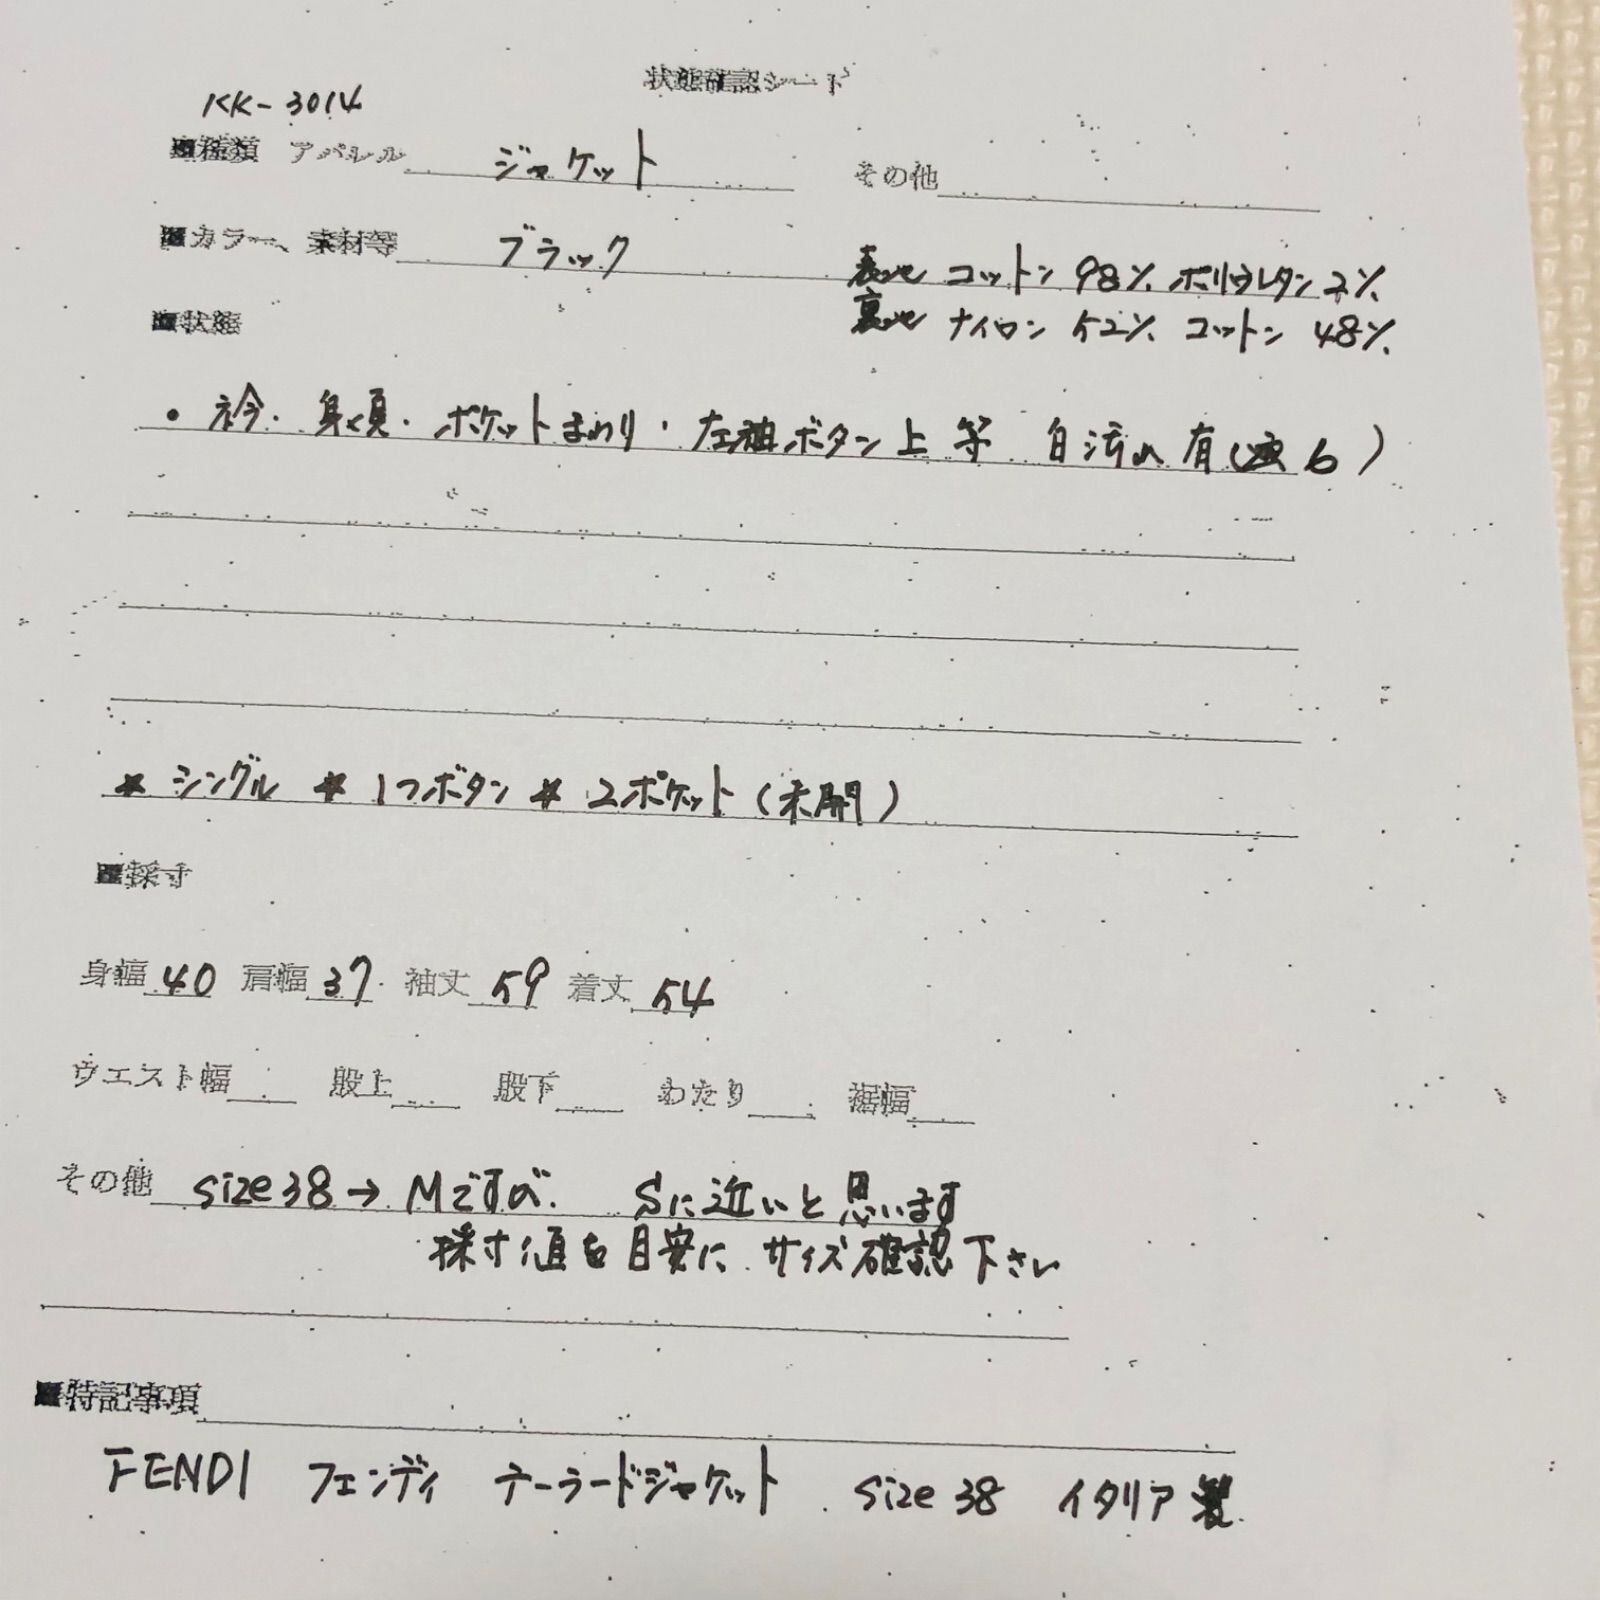 状態確認シート
KK-3014
■種類 アパレル ジャケット その他
■カラー、素材等 ブラック 表地 コットン 98% ポリウレタン 2%
裏地 ナイロン 52% コットン 48%
■状態
• 衿・身頃・ポケットまわり・左袖ボタン上 等 白汚れ 有
* シングル * 1つボタン * 2ポケット(未開)
■採寸
身幅 40 肩幅 37 袖丈 59 着丈 54
ウエスト幅 股上 股下 わたり 裾幅
その他 size 38 → Mですが、 Sに近いと思います
採寸値を目安に サイズ確認下さい
■特記事項
FENDI フェンディ テーラードジャケット size 38 イタリア製